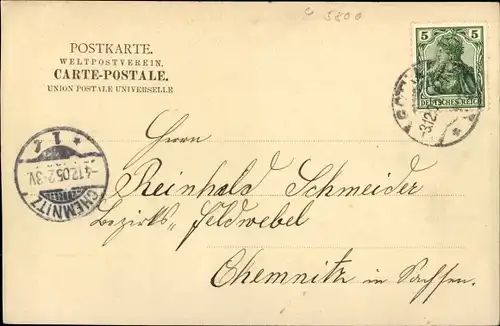 5800
POSTKARTE.
WELTPOSTVEREIN.
CARTE-POSTALE.
UNION POSTALE UNIVERSELLE
5 5
DEUTSCHES REICH
3.12.
1 2
4.12.05.2-3V.
CHEMNITZ
Herrn
Reinhold Schneider
Bezirks-Feldwebel
Chemnitz in Sachsen.